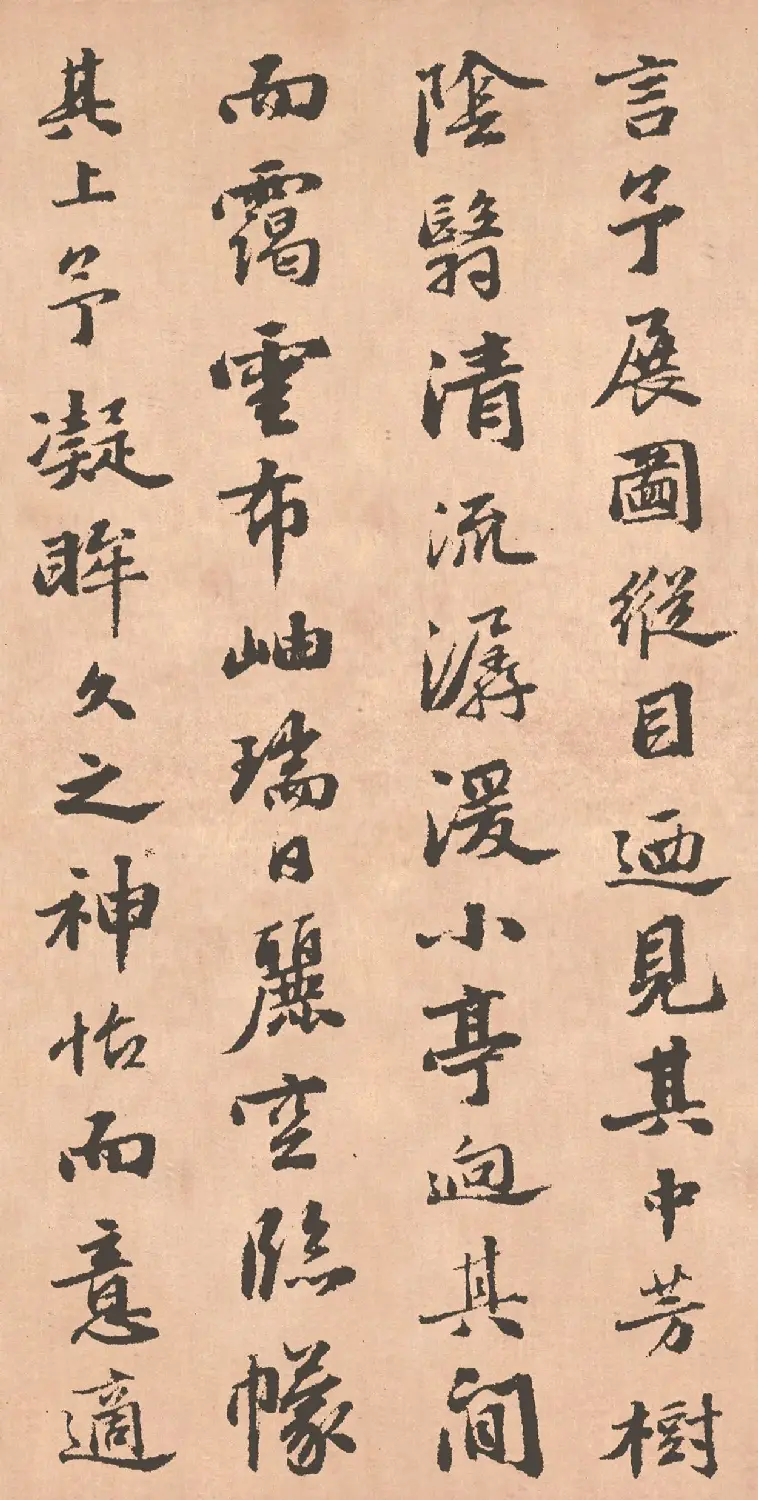 言予展圖縱目迺見其中芳樹
陰翳清流潺湲小亭逈其間
而靄雲布岫瑞日麗空臨幪
其上予凝眸久之神怡而意適